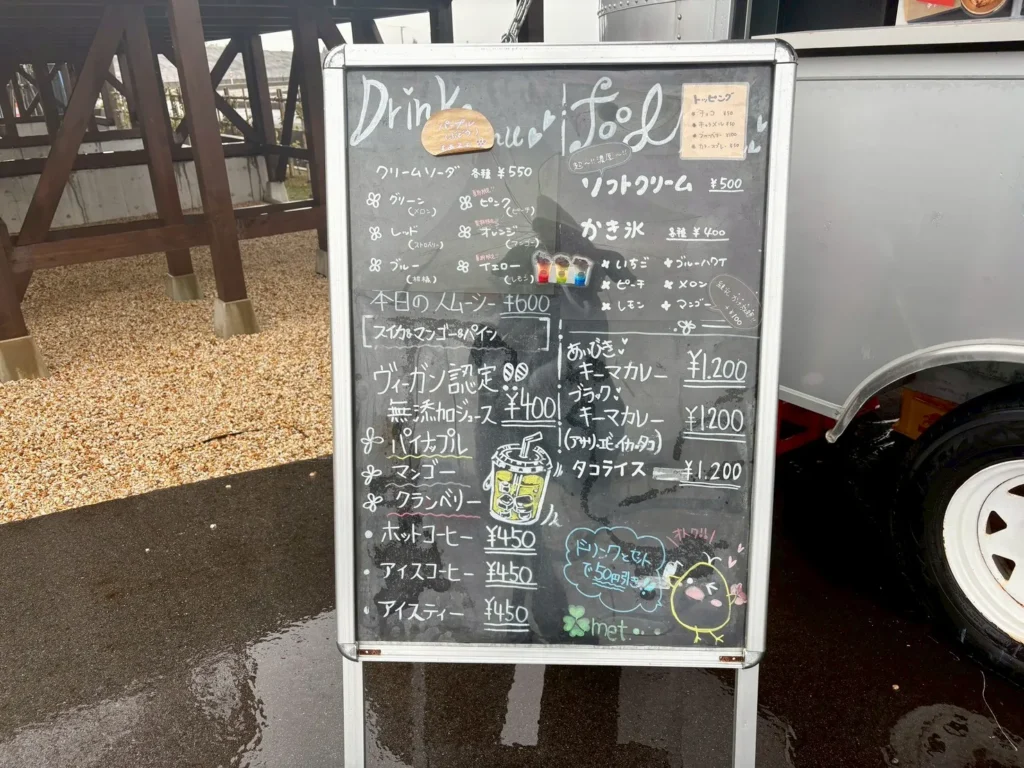 Drink
クリームソーダ 各種 ¥550
グリーン
(メロン)
ピンク
(ピーチ)
レッド
オレンジ
(マンゴー)
ブルー
イエロー
(レモン)
本日のスムージー ¥600
スイカ&マンゴー&パイン
ヴィーガン認定
無添加ジュース ¥400
パイナップル
マンゴー
クランベリー
ホットコーヒー ¥450
アイスコーヒー ¥450
アイスティー ¥450
food
トッピング
ソフトクリーム ¥500
かき氷 各種 ¥400
いちご
ブルーハワイ
ピーチ
メロン
レモン
マンゴー
あいびき
キーマカレー ¥1.200
ブラック
キーマカレー ¥1.200
(アサリ・エビ・イカ・タコ)
タコライス ¥1.200
オトクル!
ドリンクとセット
で50円引き
met.